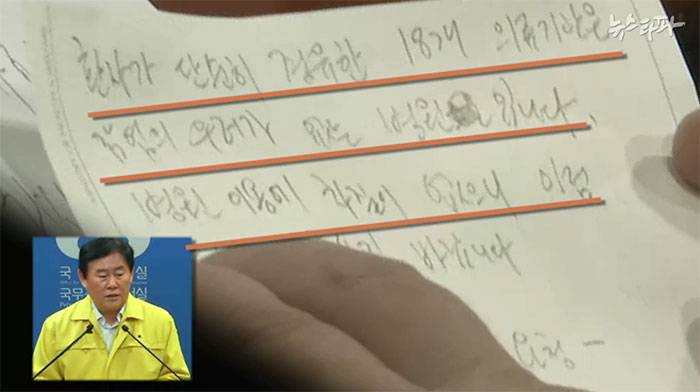 뉴스타파
환자가 단순히 경유한 18개 의료기관은
감염의 우려가 없는 병원 입니다.
병원 이용에 차질이 없으니 이점
바랍니다
국 실
국무